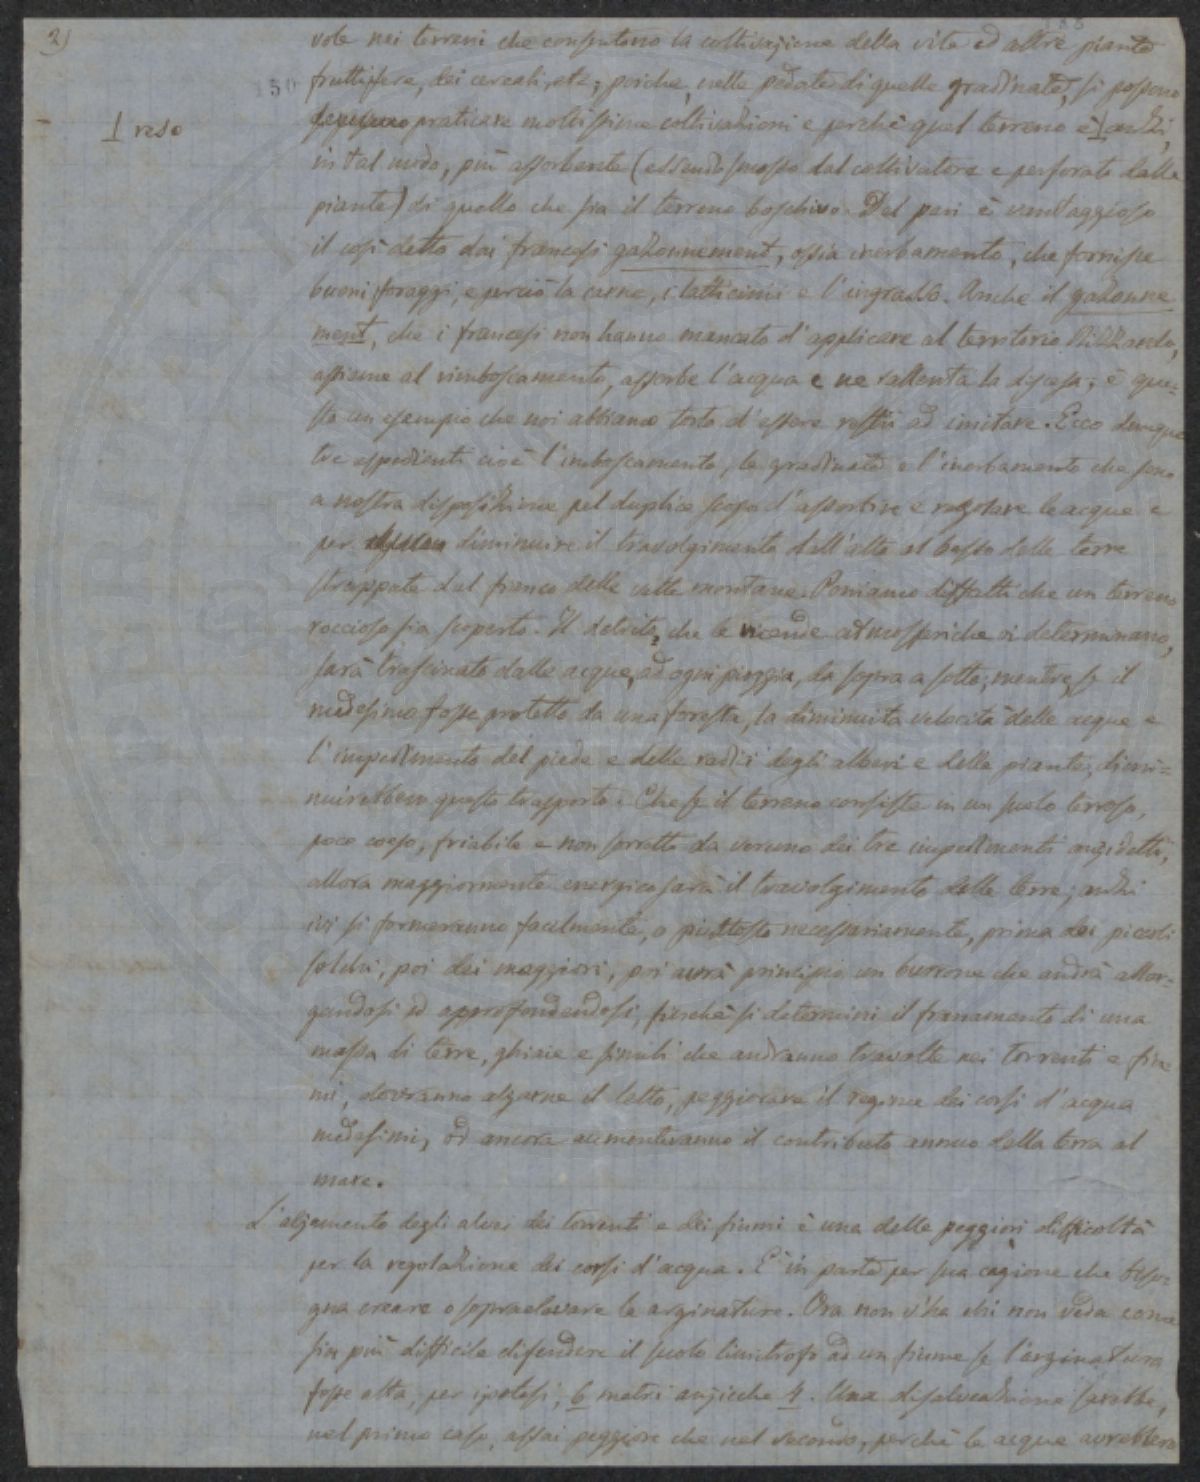 2)
vole nei terreni che consentono la coltivazione della vite ed altre piante
fruttifere, dei cereali, etc; poichè, nelle pedate di quelle gradinate, si possono
praticare moltissime coltivazioni e perchè quel terreno è anzi,
I reso
in tal modo, più assorbente (essendo smosso dal coltivatore e perforato dalle
piante) di quello che sia il terreno boschivo. Del pari è vantaggioso
il così detto dai francesi gazonnement, ossia inerbamento, che fornisce
buoni foraggi, e perciò la carne, i latticini e l'ingrasso. Anche il gazonne
ment, che i francesi non hanno mancato d'applicare al territorio Nizzardo,
assieme al rimboscamento, assorbe l'acqua e ne rallenta la discesa; è que-
sto un esempio che noi abbiamo torto d'essere restii ad imitare. Ecco dunque
tre espedienti cioè l'imboscamento, le gradinate e l'inerbamento che sono
a nostra disposizione pel duplice scopo d'assorbire e regolare le acque e
per diminuire il travolgimento dall'alto al basso delle terre
strappate dal fianco delle valli montane. Poniamo diffatti che un terreno
roccioso sia scoperto. Il detrito, che le vicende atmosferiche vi determinano,
sarà trascinato dalle acque, ad ogni pioggia, da sopra a sotto; mentre, se il
medesimo fosse protetto da una foresta, la diminuita velocità delle acque e
l'impedimento del piede e delle radici degli alberi e delle piante, dimi=
nuirebbero questo trasporto. Che se il terreno consiste in un suolo terroso,
poco coeso, friabile e non sorretto da veruno dei tre impedimenti anzidetti,
allora maggiormente energico sarà il travolgimento delle terre; anzi
ivi si formeranno facilmente, o piuttosto necessariamente, prima dei piccoli
solchi, poi dei maggiori, poi avrà principio un burrone che andrà allar=
gandosi ed approfondendosi, finchè si determini il franamento di una
massa di terre, ghiaie e simili che andranno travolte nei torrenti e fiu
mi, dovranno alzarne il letto, peggiorare il regime dei corsi d'acqua
medesimi, ed ancora aumenteranno il contributo annuo della terra al
mare.
L'alzamento degli alvei dei torrenti e dei fiumi è una delle peggiori difficoltà
per la regolazione dei corsi d'acqua. E' in parte per sua cagione che biso=
gna creare o sopraelevare le arginature. Ora non v'ha chi non veda come
sia più difficile difendere il suolo limitrofo ad un fiume se l'arginatura
fosse alta, per ipotesi, 6 metri anzicchè 4. Una disalveazione sarebbe,
nel primo caso, assai peggiore che nel secondo, perchè le acque avrebbero